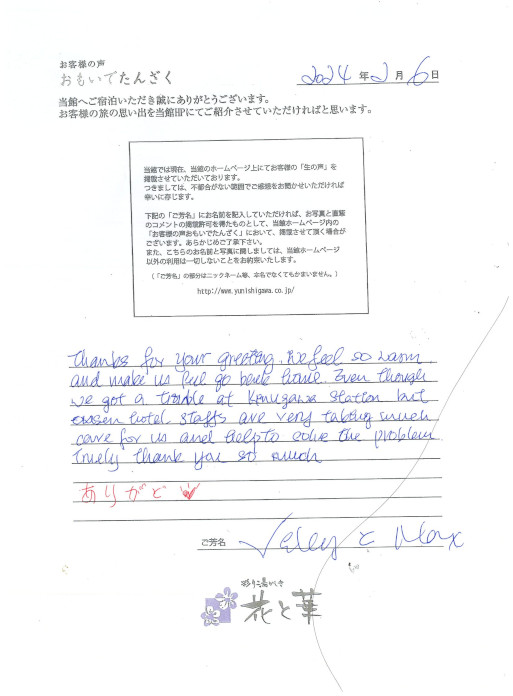 お客様の声
おもいでたんざく
2024年2月6日
当館へご宿泊いただき誠にありがとうございます。
お客様の旅の思い出を当館HPにてご紹介させていただければと思います。
当館では現在、当館のホームページ上にてお客様の「生の声」を
掲載させていただいております。
つきましては、不都合がない範囲でご感想をお聞かせいただければ
幸いに存じます。
下記の「ご芳名」にお名前を記入していただければ、お写真と直筆
のコメントの掲載許可を得たものとして、当館ホームページ内の
「お客様の声おもいでたんざく」において、掲載させて頂く場合が
ございます。あらかじめご了承下さい。
また、こちらのお名前と写真に関しましては、当館ホームページ
以外の利用は一切しないことをお約束いたします。
(「ご芳名」の部分はニックネーム等、本名でなくてもかまいません。)
http://www.yunishigawa.co.jp/
thanks for your greeting. We feel so warm
and make us feel go back home. Even though
we got a trouble at Kinugawa station but
hotel staffs are very taking much
care for us and help to solve the problem
Truely thank you so much
ありがと
ご芳名
と Max
彩り湯かしき
花と華